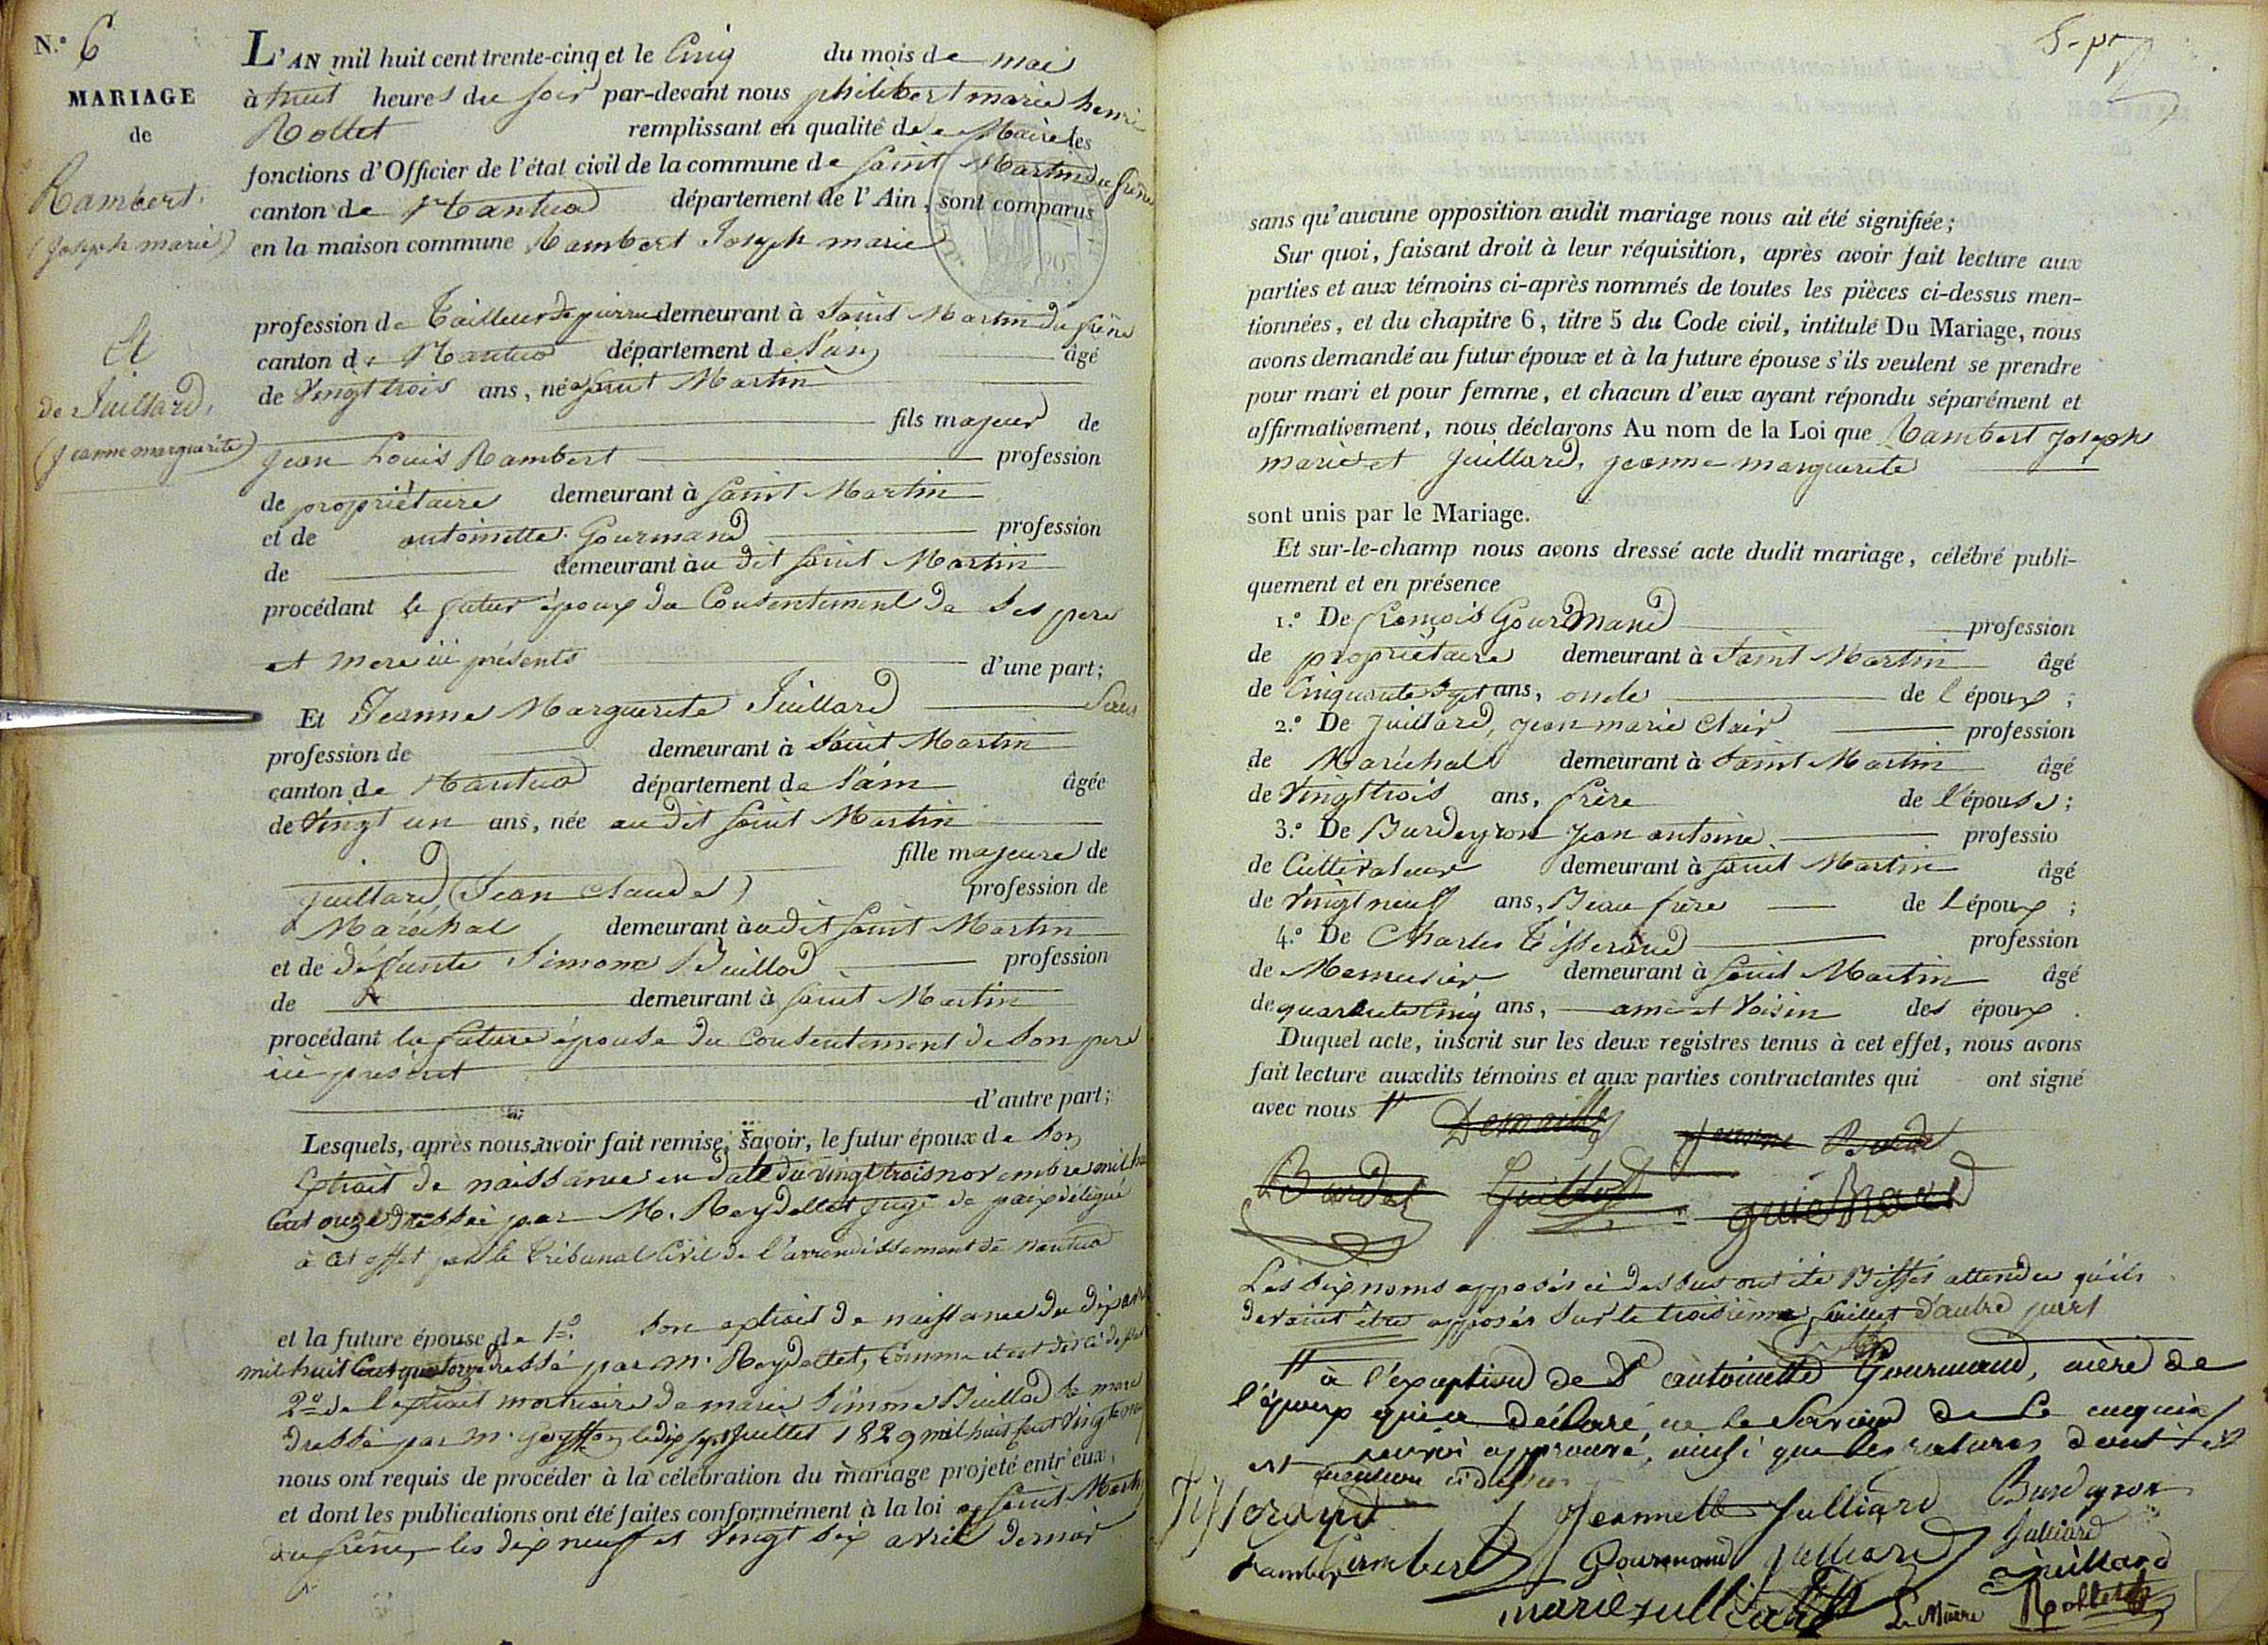 N.º 6
MARIAGE
de
Rambert.
(Joseph marie)
Et
de Juillard,
(Jeanne marguerite)
L'AN mil huit cent trente-cinq et le Cinq du mois de mai
à huit heures du soir par-devant nous philibert marie henri
Rollet remplissant en qualité de Maire les
fonctions d'Officier de l'état civil de la commune de Saint Martin du frêne
canton de Nantua département de l'Ain, sont comparus
en la maison commune Rambert Joseph marie
profession de Tailleur de pierre demeurant à Saint Martin du frêne
canton de Nantua département de l'ain âgé
de Vingt trois ans, né à Saint Martin
fils majeur de
Jean Louis Rambert profession
de propriétaire demeurant à Saint Martin
et de antoinette Gourmand profession
de demeurant au dit Saint Martin
procédant le futur époux du Consentement de Ses pere
et mere ici présents d'une part;
Et Jeanne Marguerite Juillard Sans
profession de demeurant à Saint Martin
canton de Nantua département de l'ain âgée
de Vingt un ans, née au dit Saint Martin
fille majeure de
juillard (Jean Claude) profession de
Maréchal demeurant au dit Saint Martin
et de défunte Simone Buillod profession
de demeurant à Saint Martin
procédant la future épouse du Consentement de Son pere
ici présent
d'autre part;
Lesquels, après nous avoir fait remise, savoir, le futur époux de Son
Extrait de naissance en date du vingt trois novembre mil huit
Cent onze dressé par M. Reydellet juge de paix délégué
à cet effet par le tribunal Civil de l'arrondissement de nantua
et la future épouse de 1º. Son extrait de naissance du dix
mil huit Cent quatorze dressé par M. Reydellet, Comme il est dit ci dessus
2º de l'extrait mortuaire de marie Simone Buillod Sa mere
dressé par M. le dix sept Juillet 1829 mil huit Cent Vingt neuf
nous ont requis de procéder à la célébration du mariage projeté entr'eux,
et dont les publications ont été faites conformément à la loi à Saint Martin
du frêne, les dix neuf et vingt Six avril dernier
sans qu'aucune opposition audit mariage nous ait été signifiée;
Sur quoi, faisant droit à leur réquisition, après avoir fait lecture aux
parties et aux témoins ci-après nommés de toutes les pièces ci-dessus men-
tionnées, et du chapitre 6, titre 5 du Code civil, intitulé Du Mariage, nous
avons demandé au futur époux et à la future épouse s'ils veulent se prendre
pour mari et pour femme, et chacun d'eux ayant répondu séparément et
affirmativement, nous déclarons Au nom de la Loi que Rambert Joseph
marie et Juillard, jeanne marguerite
sont unis par le Mariage.
Et sur-le-champ nous avons dressé acte dudit mariage, célébré publi-
quement et en présence
1.º De françois Gourmand profession
de propriétaire demeurant à Saint Martin âgé
de Cinquante Sept ans, oncle de l'époux;
2.º De Juillard, jean marie Clair profession
de Maréchal demeurant à Saint Martin âgé
de Vingt trois ans, frère de l'épouse;
3.º De Burdeyron jean antoine profession
de Cultivateur demeurant à Saint Martin âgé
de Vingt neuf ans, Beau frère de l'époux;
4.º De Charles Tisserand profession
de Menuisier demeurant à Saint Martin âgé
de quarante Cinq ans, ami et Voisin des époux.
Duquel acte, inscrit sur les deux registres tenus à cet effet, nous avons
fait lecture auxdits témoins et aux parties contractantes qui ont signé
avec nous
Les Six noms apposés ci dessus ont été Biffés attendu qu'ils
devaient être apposés Sur le troisième feuillet d'autre part
à l'exception de antoinette Gourmand, mère de
l'époux qui a déclaré ne le Savoir de ce enquis
et renvoi approuvé, ainsi que les ratures dont est
mention ci dessus
Tisserand Jeannette Julliard Burdeyron
Rambert Gourmand Julliard Julliard
Juillard
marie Julliard Le Maire Rollet